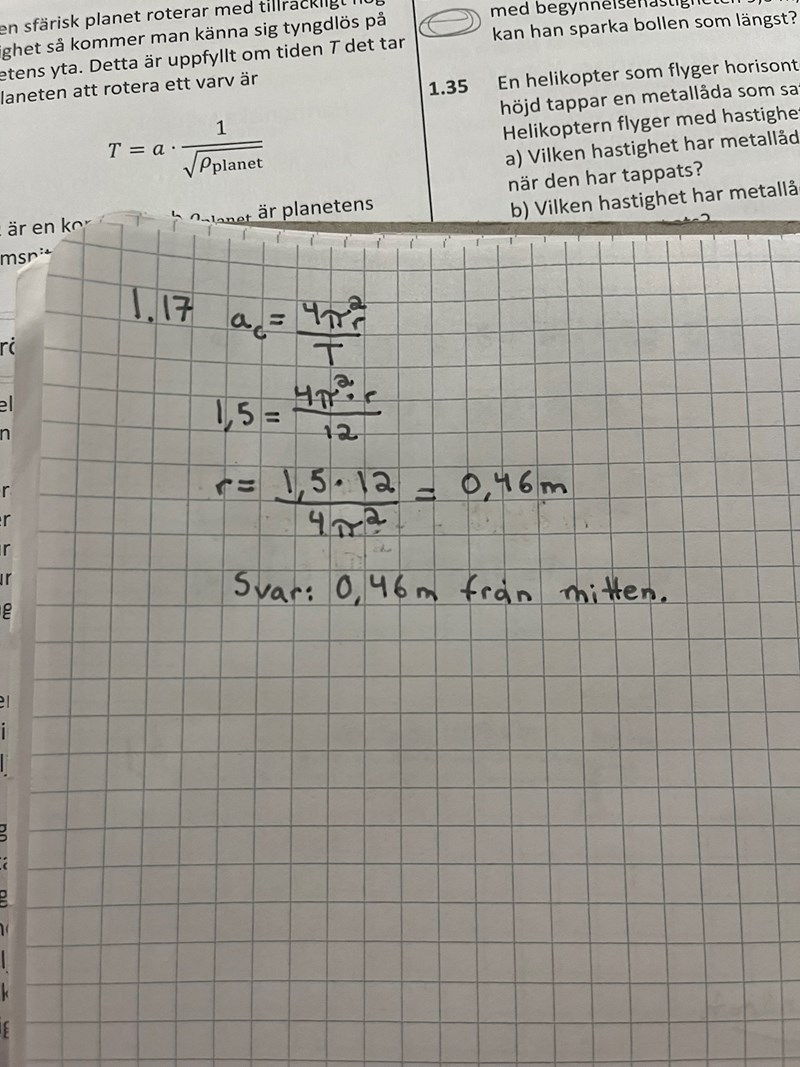 en sfärisk planet roterar med tillräckligt hög
ighet så kommer man känna sig tyngdlös på
etens yta. Detta är uppfyllt om tiden T det tar
laneten att rotera ett varv är
T = a · 1/√ρplanet
är en kon
ρplanet är planetens
msnit
med begynnelsehastigheten
kan han sparka bollen som längst?
1.35 En helikopter som flyger horisont
höjd tappar en metallåda som sa
Helikoptern flyger med hastighe
a) Vilken hastighet har metallåd
när den har tappats?
b) Vilken hastighet har metallå
1.17 a_c = 4π²r/T
1,5 = 4π²·r/12
r = 1,5·12/4π² = 0,46m
Svar: 0,46m från mitten.